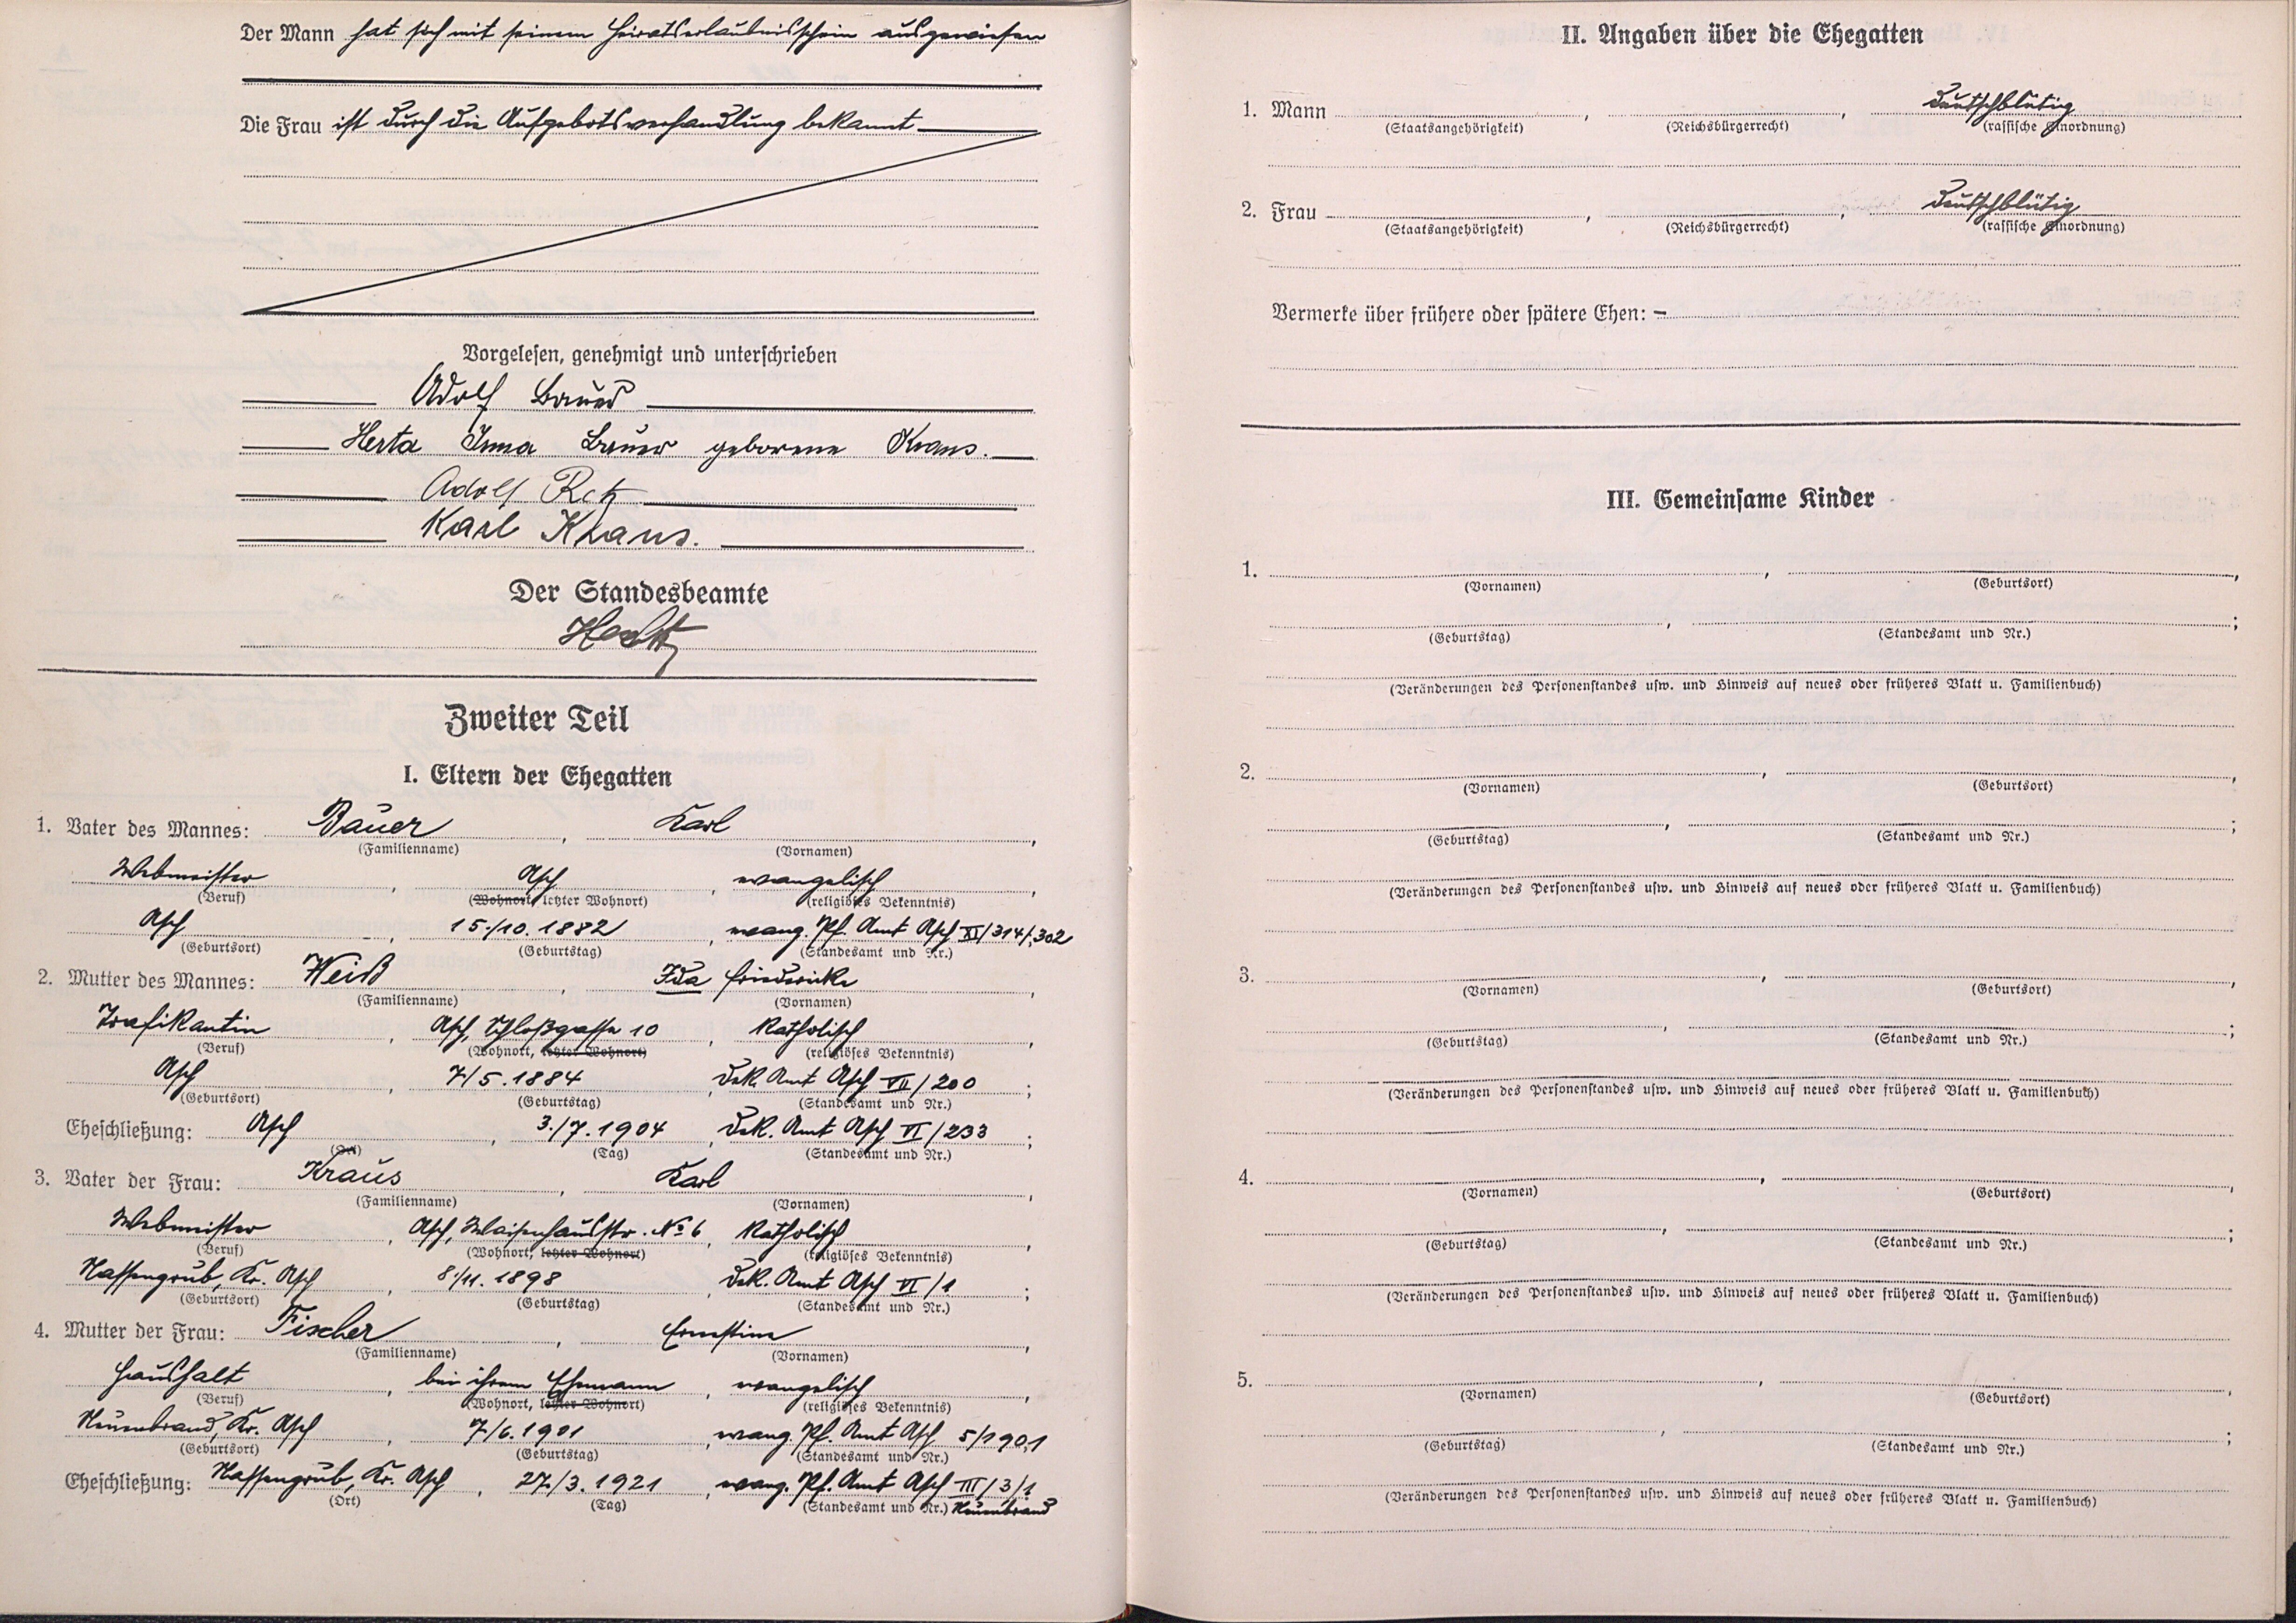 Der Mann hat sich mit seinem Heiratserlaubnisschein ausgewiesen
Die Frau ist durch die Aufgebotsverhandlung bekannt
Vorgelesen, genehmigt und unterschrieben
Adolf Bauer
Herta Irma Bauer geborene Kraus.
Adolf
Karl Kraus.
Der Standesbeamte
Zweiter Teil
I. Eltern der Ehegatten
1. Vater des Mannes: Bauer, Karl,
(Familienname) (Vornamen)
Webmeister, Asch, evangelisch,
(Beruf) (Wohnort, letzter Wohnort) (religiöses Bekenntnis)
Asch, 15./10. 1882, evang. Pf. Amt Asch XI/314/302
(Geburtsort) (Geburtstag) (Standesamt und Nr.)
2. Mutter des Mannes: Weiß, Ida Friederike,
(Familienname) (Vornamen)
Trafikantin, Asch, Schloßgasse 10, Katholisch,
(Beruf) (Wohnort, letzter Wohnort) (religiöses Bekenntnis)
Asch, 7/5. 1884, Dek. Amt Asch VII/200;
(Geburtsort) (Geburtstag) (Standesamt und Nr.)
Eheschließung: Asch, 3./7. 1904, Dek. Amt Asch VI/233;
(Ort) (Tag) (Standesamt und Nr.)
3. Vater der Frau: Kraus, Karl,
(Familienname) (Vornamen)
Webmeister, Asch, Waisenhausstr. № 6, Katholisch,
(Beruf) (Wohnort, letzter Wohnort) (religiöses Bekenntnis)
Nassengrub, Kr. Asch, 8./11. 1898, Dek. Amt Asch VI/1;
(Geburtsort) (Geburtstag) (Standesamt und Nr.)
4. Mutter der Frau: Fischer, Ernestine,
(Familienname) (Vornamen)
Haushalt, bei ihrem Ehemann, evangelisch,
(Beruf) (Wohnort, letzter Wohnort) (religiöses Bekenntnis)
Neuenbrand, Kr. Asch, 7/6. 1901, evang. Pf. Amt Asch 5/1901
(Geburtsort) (Geburtstag) (Standesamt und Nr.)
Eheschließung: Nassengrub, Kr. Asch, 27./3. 1921, evang. Pf. Amt Asch III/3/1
(Ort) (Tag) (Standesamt und Nr.) Neuenbrand
II. Angaben über die Ehegatten
1. Mann , , deutschblütig
(Staatsangehörigkeit) (Reichsbürgerrecht) (rassische Einordnung)
2. Frau , , deutschblütig
(Staatsangehörigkeit) (Reichsbürgerrecht) (rassische Einordnung)
Vermerke über frühere oder spätere Ehen: –
III. Gemeinsame Kinder
1. , ,
(Vornamen) (Geburtsort)
, ;
(Geburtstag) (Standesamt und Nr.)
(Veränderungen des Personenstandes usw. und Hinweis auf neues oder früheres Blatt u. Familienbuch)
2. , ,
(Vornamen) (Geburtsort)
, ;
(Geburtstag) (Standesamt und Nr.)
(Veränderungen des Personenstandes usw. und Hinweis auf neues oder früheres Blatt u. Familienbuch)
3. , ,
(Vornamen) (Geburtsort)
, ;
(Geburtstag) (Standesamt und Nr.)
(Veränderungen des Personenstandes usw. und Hinweis auf neues oder früheres Blatt u. Familienbuch)
4. , ,
(Vornamen) (Geburtsort)
, ;
(Geburtstag) (Standesamt und Nr.)
(Veränderungen des Personenstandes usw. und Hinweis auf neues oder früheres Blatt u. Familienbuch)
5. , ,
(Vornamen) (Geburtsort)
, ;
(Geburtstag) (Standesamt und Nr.)
(Veränderungen des Personenstandes usw. und Hinweis auf neues oder früheres Blatt u. Familienbuch)